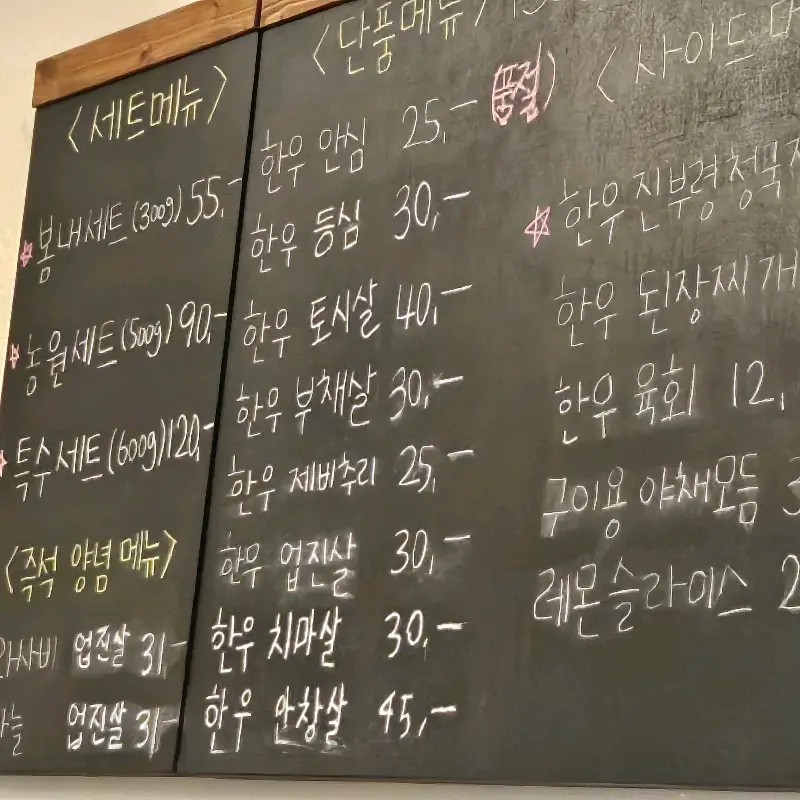 <세트메뉴>
☆봄내세트(300g) 55,-
☆농원세트(500g) 90,-
☆특수세트(600g) 120,-
<즉석 양념 메뉴>
와사비 업진살 31,-
마늘 업진살 31,-
<단품메뉴>
한우 안심 25,- (품절)
한우 등심 30,-
한우 토시살 40,-
한우 부채살 30,-
한우 제비추리 25,-
한우 업진살 30,-
한우 치마살 30,-
한우 안창살 45,-
<사이드
☆한우진부령청국
한우 된장찌개
한우 육회 12,
구이용 야채모듬 3
레몬슬라이스 2